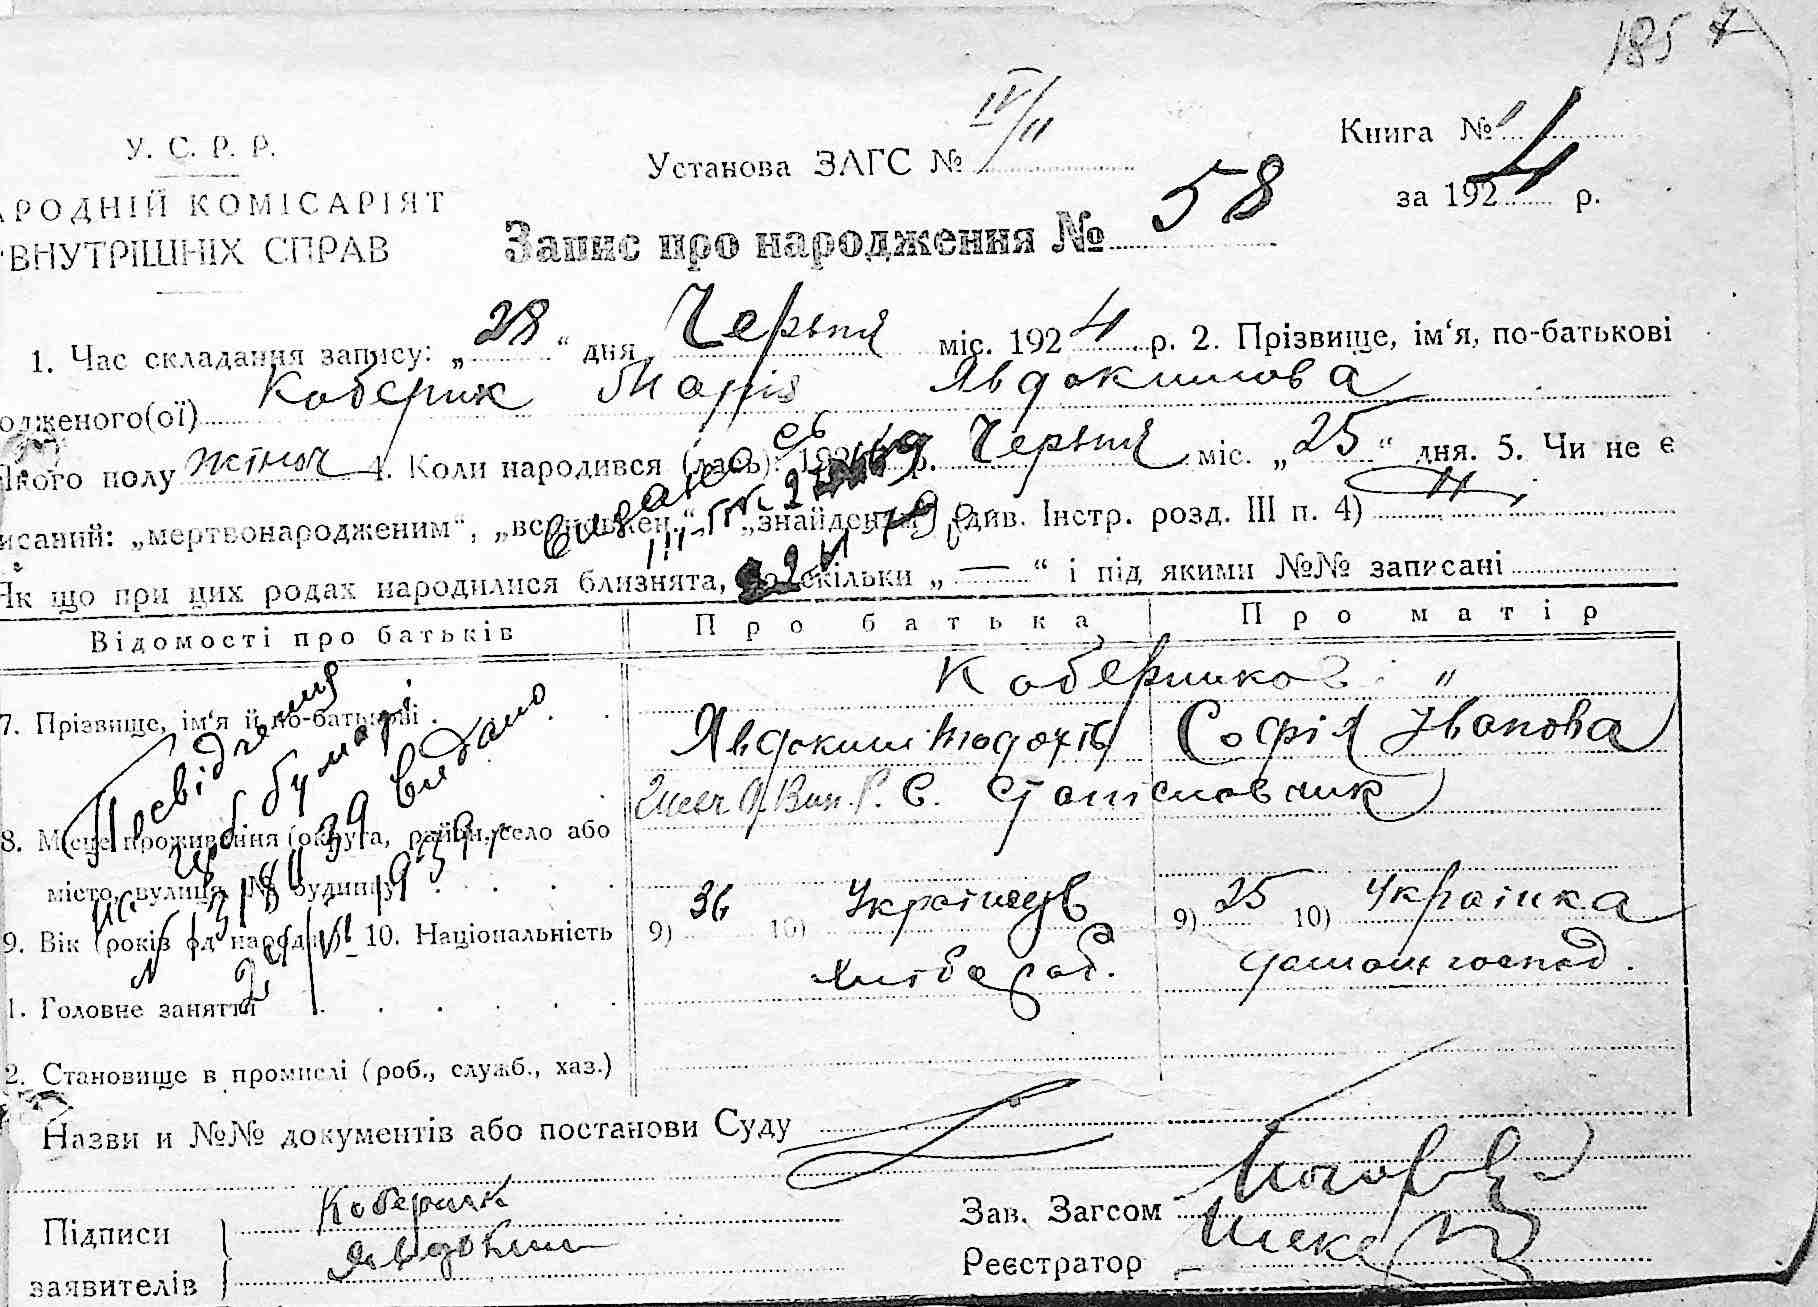 185 7
У. С. Р. Р.
АРОДНІЙ КОМІСАРІЯТ
ВНУТРІШНІХ СПРАВ
Установа ЗАГС № IV/II
Книга №
за 1924 р.
Запис про народження № 58
1. Час складання запису: „28“ дня Червня міс. 1924 р. 2. Прізвище, ім‘я, по-батькові
одженого(ої) Коберник Марія Явдокимова
Якого полу жіноч 4. Коли народився (лась): 192 р. Червня міс. „25“ дня. 5. Чи не є
исаний: „мертвонародженим“, „всиновлен.“, „знайденим“ (див. Інстр. розд. III п. 4)
Як що при цих родах народилися близнята, то скільки „—“ і під якими №№ записані
Відомості про батьків Про батька Про матір
7. Прізвище, ім‘я й по-батькові
Коберники "
Явдоким Софія Іванова
с. Станіславчик
8. Місце проживання (округа, район, село або
місто, вулиця, № будинку)
9. Вік (років од народж.) 10. Національність
9) 36 10) Українець
9) 25 10) Українка
1. Головне заняття
хлібороб. домашн господ.
2. Становище в промислі (роб., служб., хаз.)
Посвідчення
видано
Назви и №№ документів або постанови Суду
Підписи
заявителів
Коберник
Явдоким
Зав. Загсом
Реєстратор